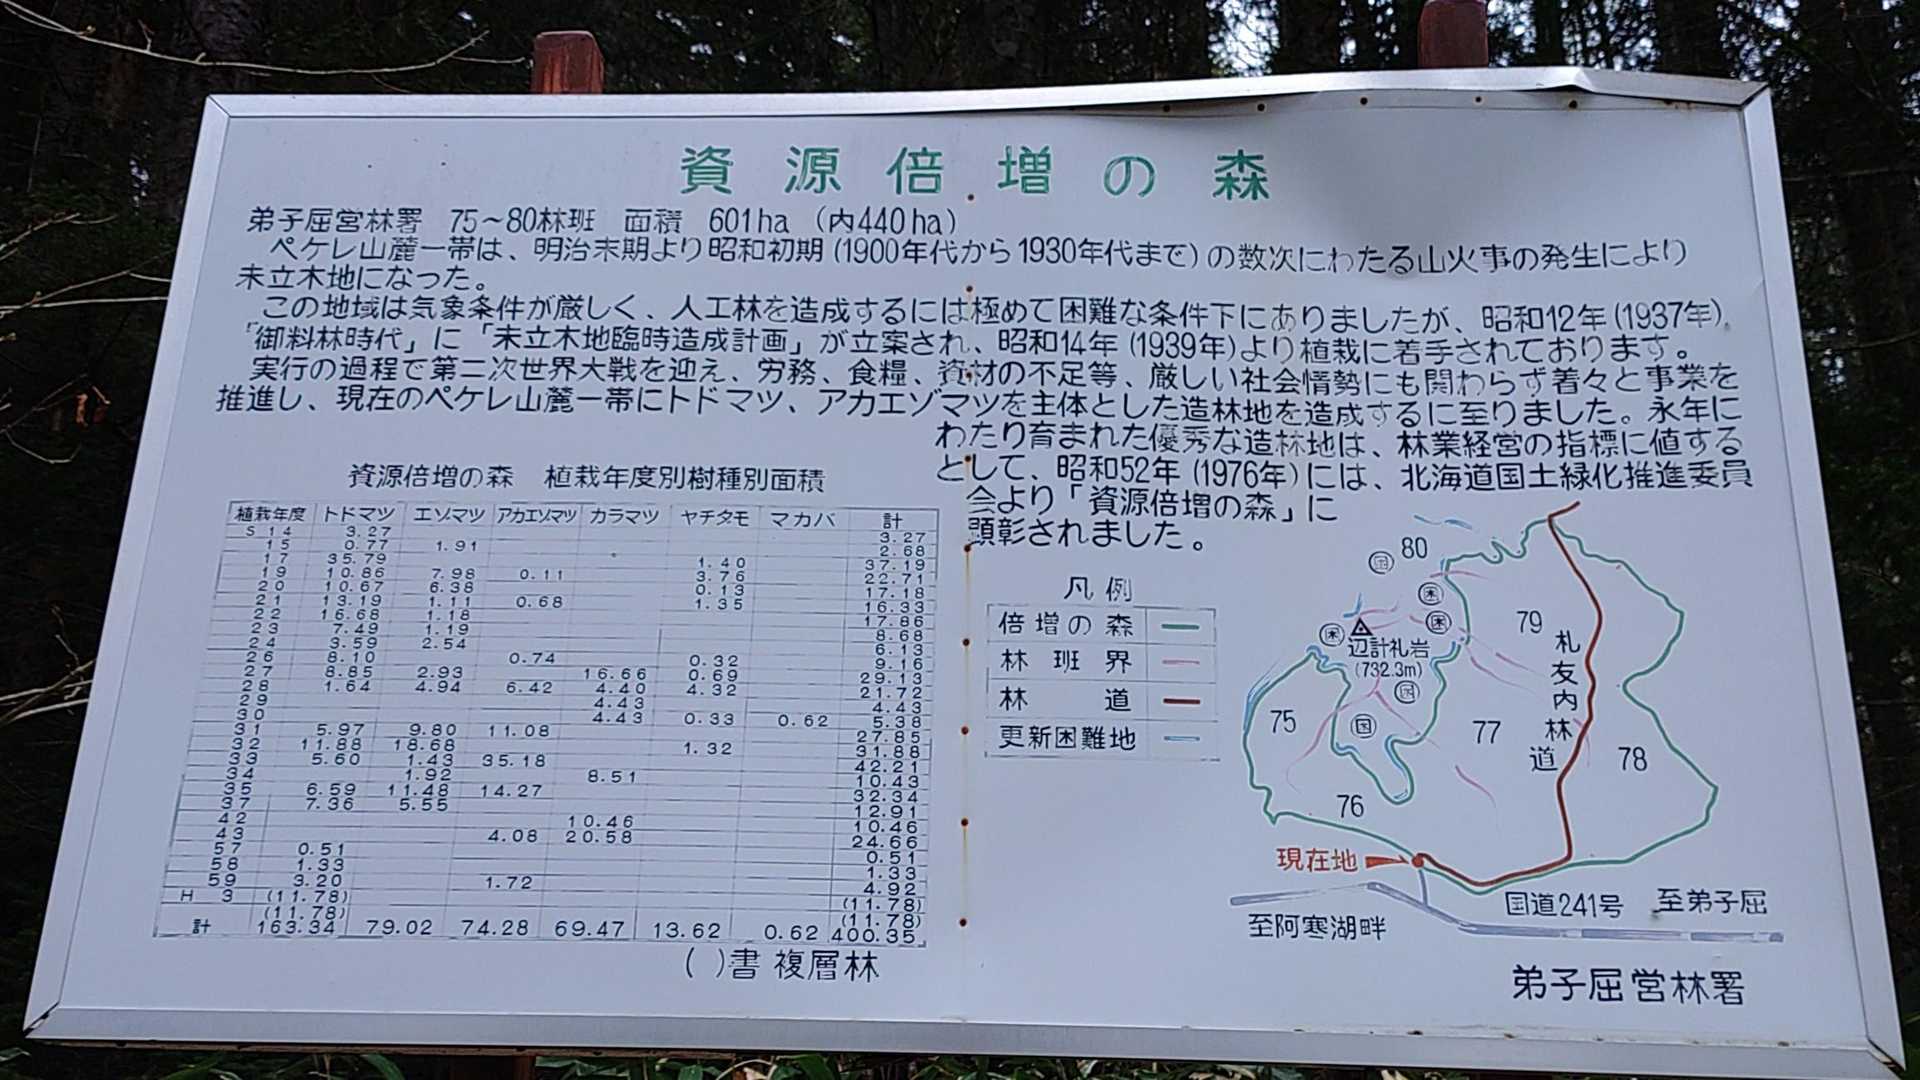 資源倍増の森
弟子屈営林署　75～80林班　面積　601ha（内440ha）
ペケレ山麓一帯は、明治末期より昭和初期(1900年代から1930年代まで)の数次にわたる山火事の発生により
未立木地になった。
この地域は気象条件が厳しく、人工林を造成するには極めて困難な条件下にありましたが、昭和12年(1937年)、
「御料林時代」に「未立木地臨時造成計画」が立案され、昭和14年(1939年)より植栽に着手されております。
実行の過程で第二次世界大戦を迎え、労務、食糧、資材の不足等、厳しい社会情勢にも関わらず着々と事業を
推進し、現在のペケレ山麓一帯にトドマツ、アカエゾマツを主体とした造林地を造成するに至りました。永年に
わたり育まれた優秀な造林地は、林業経営の指標に値する
として、昭和52年(1976年)には、北海道国土緑化推進委員
会より「資源倍増の森」に
顕彰されました。
資源倍増の森　植栽年度別樹種別面積
植栽年度 トドマツ エゾマツ アカエゾマツ カラマツ ヤチタモ マカバ 計
S 14 3.27 3.27
15 0.77 1.91 2.68
17 35.79 1.40 37.19
19 10.86 7.98 0.11 3.76 22.71
20 10.67 6.38 0.13 17.18
21 13.19 1.11 0.68 1.35 16.33
22 16.68 1.18 17.86
23 7.49 1.19 8.68
24 3.59 2.54 6.13
26 8.10 0.74 0.32 9.16
27 8.85 2.93 16.66 0.69 29.13
28 1.64 4.94 6.42 4.40 4.32 21.72
29 4.43 4.43
30 4.43 0.33 0.62 5.38
31 5.97 9.80 11.08 27.85
32 11.88 18.68 1.32 31.88
33 5.60 1.43 35.18 42.21
34 1.92 8.51 10.43
35 6.59 11.48 14.27 32.34
37 7.36 5.55 12.91
42 10.46 10.46
43 4.08 20.58 24.66
57 0.51 0.51
58 1.33 1.33
59 3.20 1.72 4.92
H 3 (11.78) (11.78)
(11.78) (11.78)
計 163.34 79.02 74.28 69.47 13.62 0.62 400.35
( )書 複層林
凡例
倍増の森
林班界
林道
更新困難地
80
困
困
困
困
辺計礼岩
(732.3m)
困
困
79
札友内林道
75
77
78
76
現在地
国道241号
至弟子屈
至阿寒湖畔
弟子屈営林署